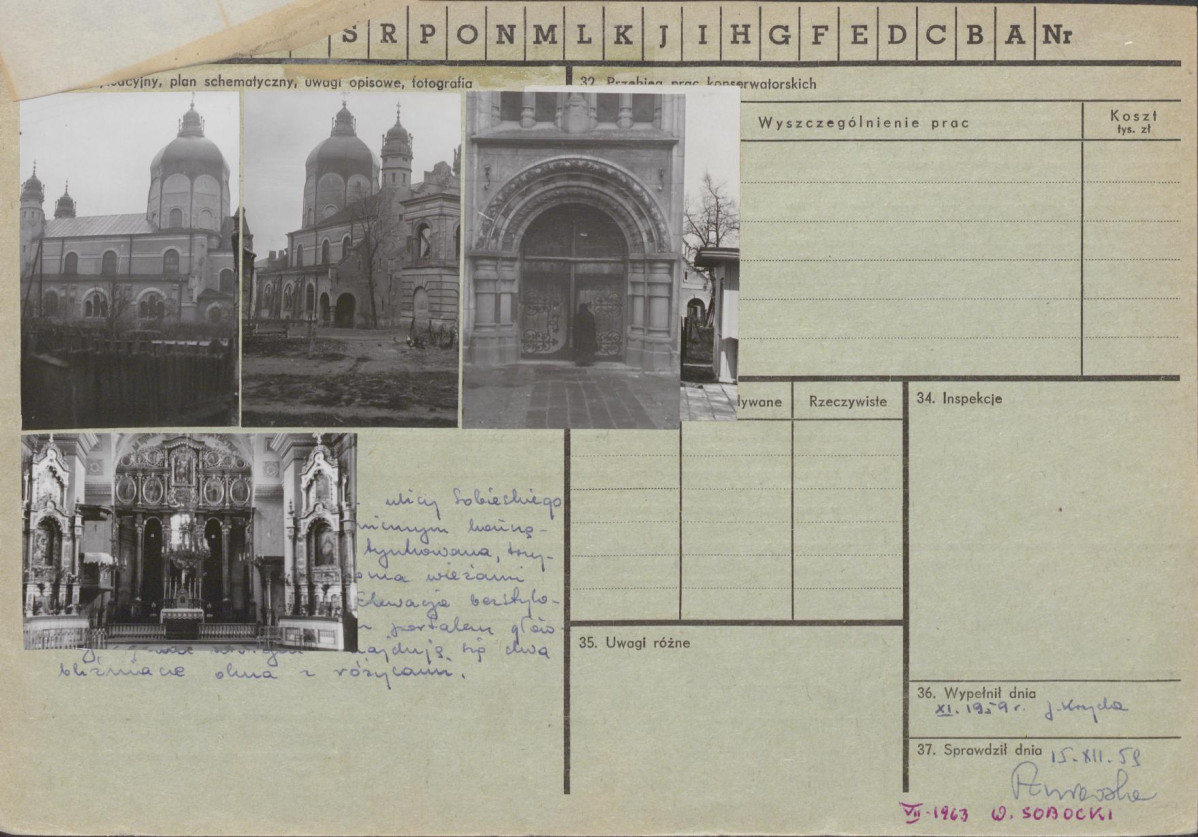 S R P O N M L K J I H G F E D C B A Nr
plan schematyczny, uwagi opisowe, fotografia
32. Przebieg prac konserwatorskich
Wyszczególnienie prac
Koszt
tys. zł
Rzeczywiste
34. Inspekcje
ulicy Sobieskiego
tynkowana, trzy-
wieżami
Elewacja bezstylo-
portalem głów-
znajdują się dwa
bliźniacze okna z różycami.
35. Uwagi różne
36. Wypełnił dnia
XI. 1959 r.
37. Sprawdził dnia
15. XII. 59
VII-1963 W. SOBOCKI